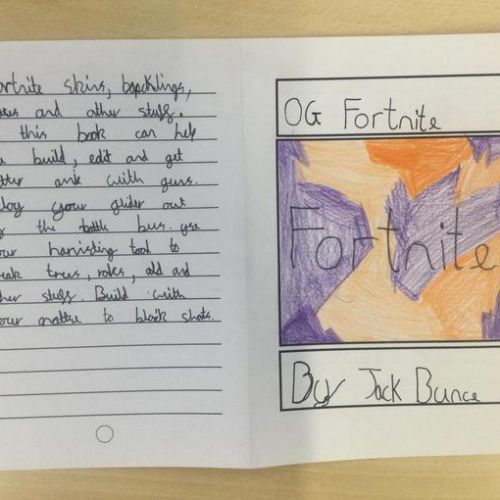 ortnite skins, backlings,
xes and other stuff.
this book can help
build, edit and get
tter aim with guns.
loy your glider out
the battle bus. use
our harvisting tool to
eak trees, roks, old and
her stuff. Build with
our mattre to block shots.
OG Fortnite
Fortnite
By Jack Bunce